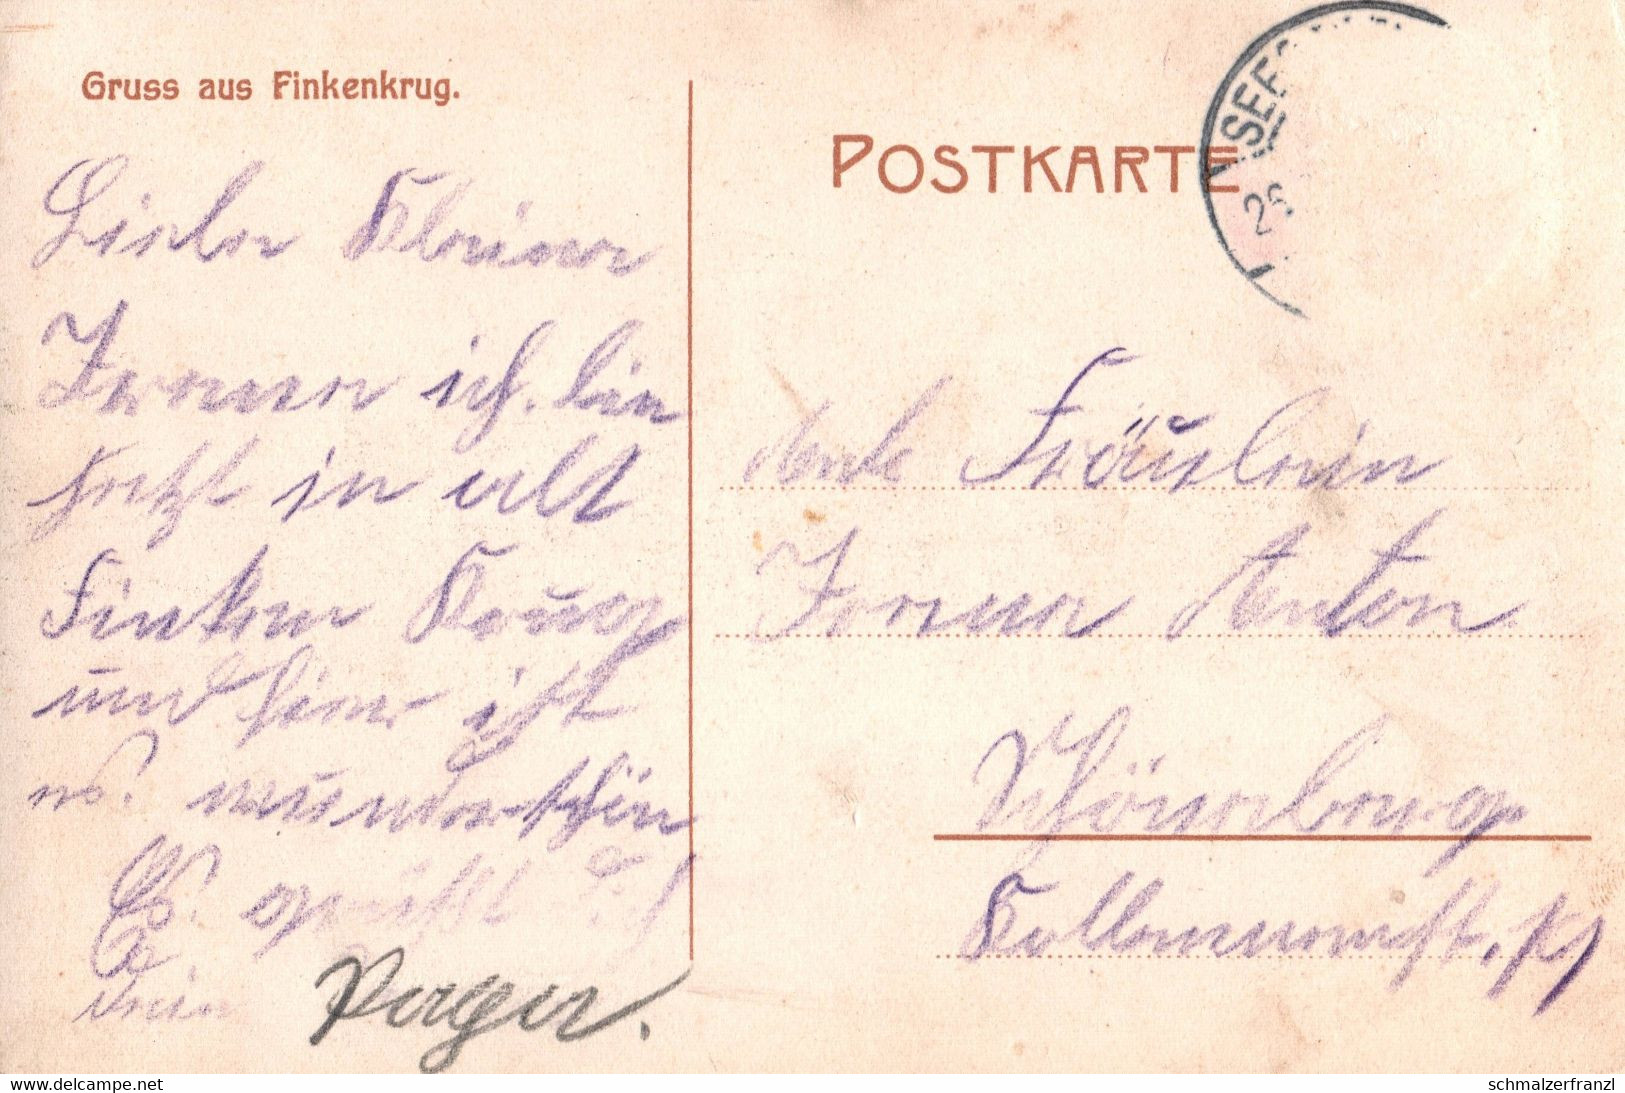 Gruss aus Finkenkrug.
Liebe Kleine
Irene ich bin
jetzt in alt
Finken Krug
und hier ist
es. wunderschön
Es. grüßt Dich
Dein
POSTKARTE
SEE
Fräulein
Irene Anton
Schöneberg
Kollonnenst.
delcampe.net
schmalzerfranzl